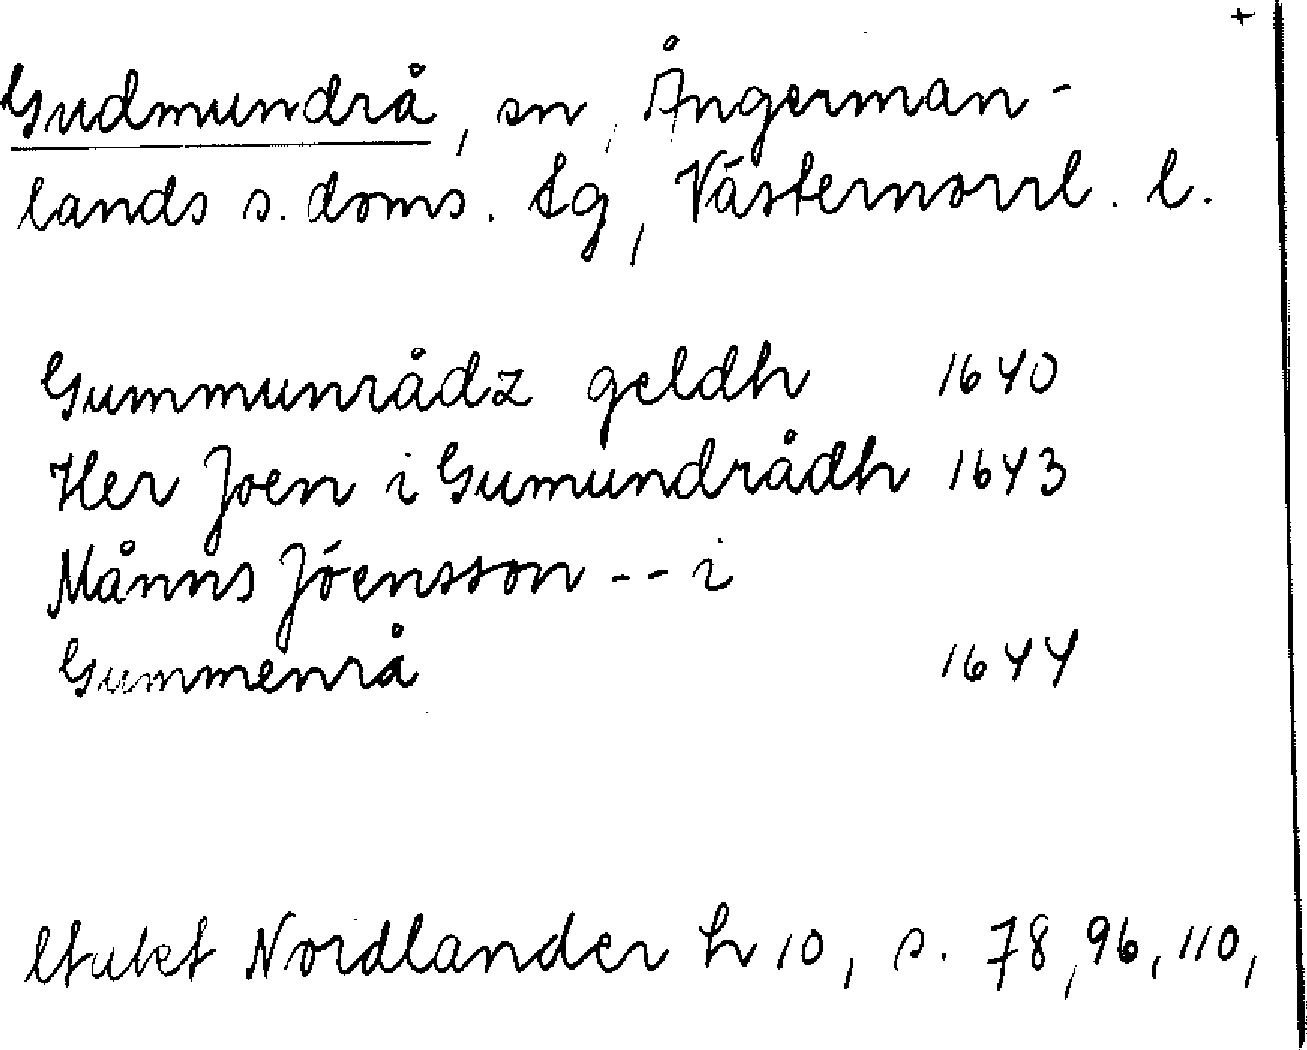 +
Gudmundrå, sn, Ångerman-
lands s. doms. tg, Västernorrl. l.
Gummunrådz geldh 1640
Her Joen i Gumundrådh 1643
Månns Jóensson -- i
Gummenrå 1644
Nordlander h 10, s. 78, 96, 110,